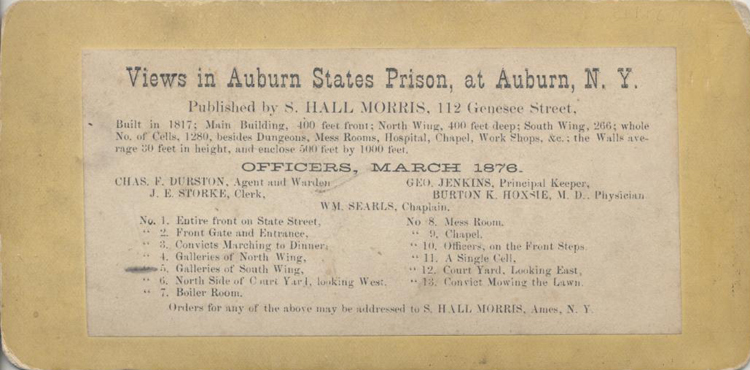 Views in Auburn States Prison, at Auburn, N. Y.
Published by S. HALL MORRIS, 112 Genesee Street,
Built in 1817; Main Building, 400 feet front; North Wing, 400 feet deep; South Wing, 266; whole
No. of Cells, 1280, besides Dungeons, Mess Rooms, Hospital, Chapel, Work Shops, &c.; the Walls ave-
rage 30 feet in height, and enclose 500 feet by 1000 feet.
OFFICERS, MARCH 1876.
CHAS. F. DURSTON, Agent and Warden GEO. JENKINS, Principal Keeper,
J. E. STORKE, Clerk, BURTON K. HOXSIE, M. D., Physician
WM. SEARLS, Chaplain,
No. 1. Entire front on State Street,
" 2. Front Gate and Entrance,
" 3. Convicts Marching to Dinner,
" 4. Galleries of North Wing,
5. Galleries of South Wing,
" 6. North Side of Court Yard, looking West,
" 7. Boiler Room.
No 8. Mess Room.
" 9. Chapel.
" 10. Officers, on the Front Steps.
" 11. A Single Cell,
" 12. Court Yard, Looking East,
" 13. Convict Mowing the Lawn.
Orders for any of the above may be addressed to S. HALL MORRIS, Ames, N. Y.